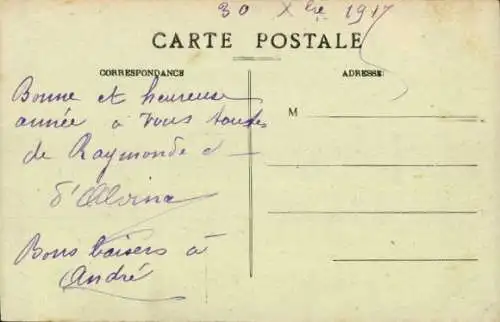 30 Xbre 1917
CARTE POSTALE
CORRESPONDANCE
ADRESSE
Bonne et heureuse
année à vous toutes
de Raymonde &
d'Alvina
Bons baisers à
André
M